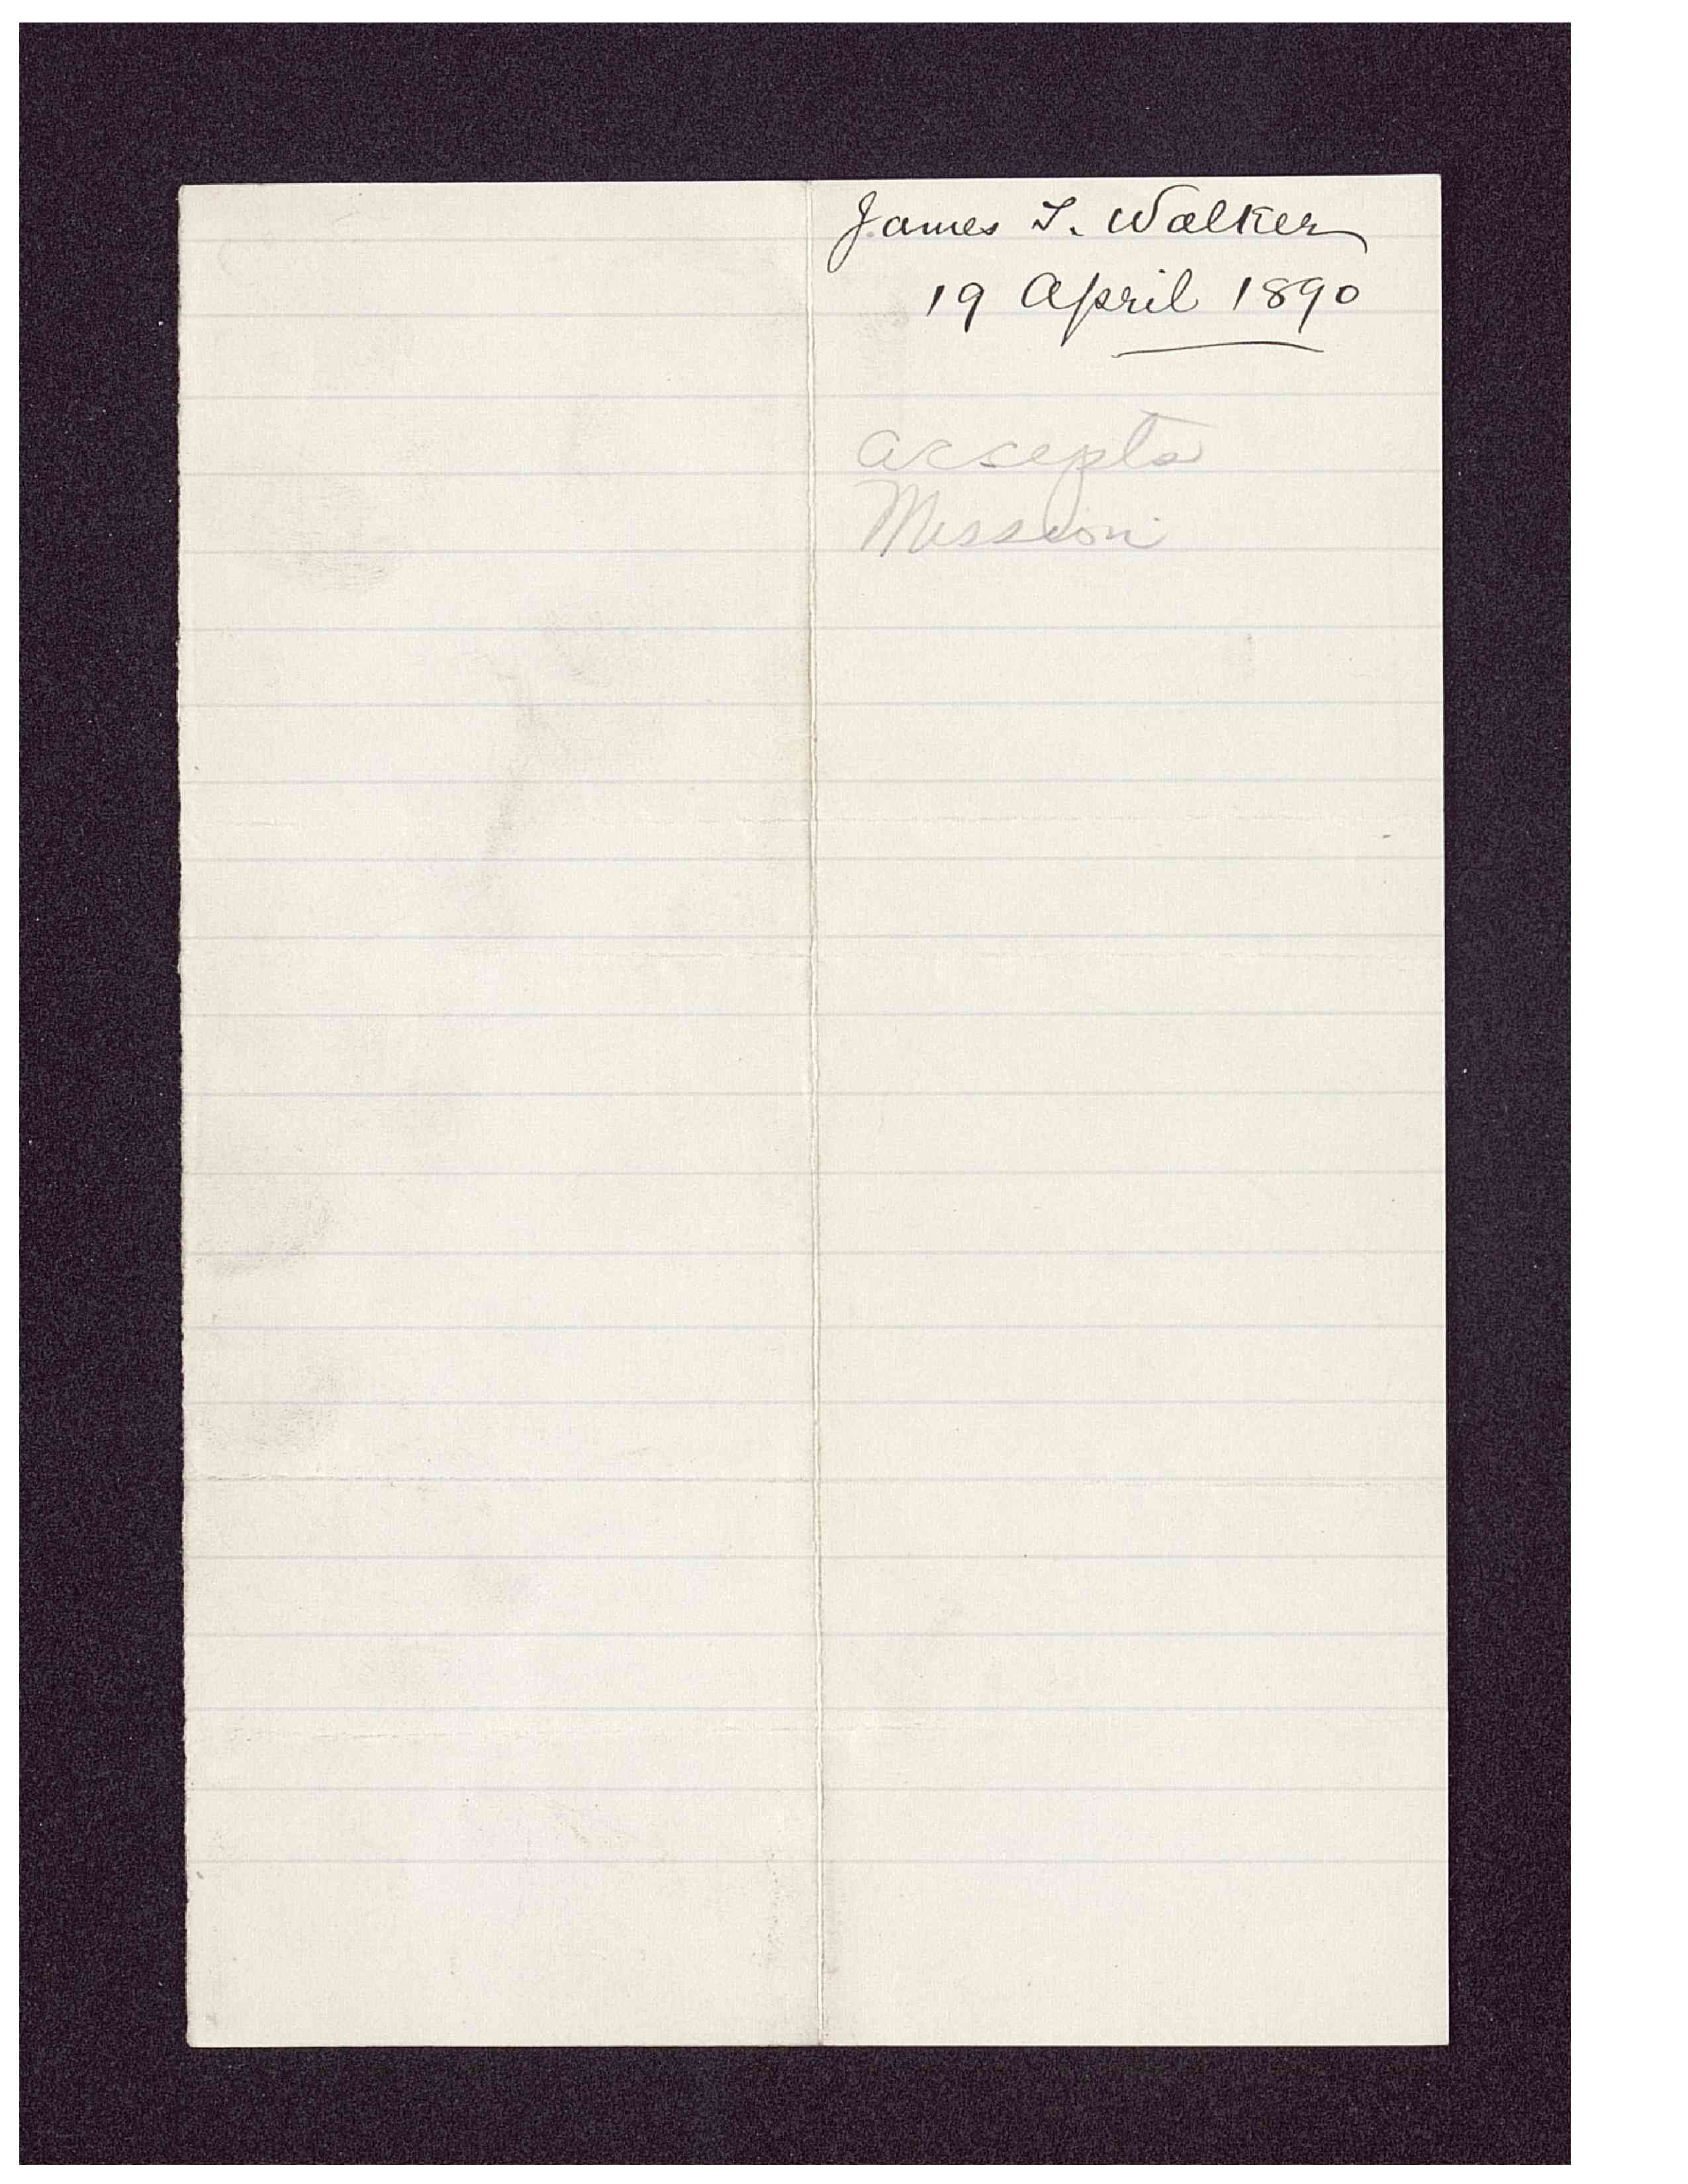 James T. Walker
19 April 1890
accepts
Mission